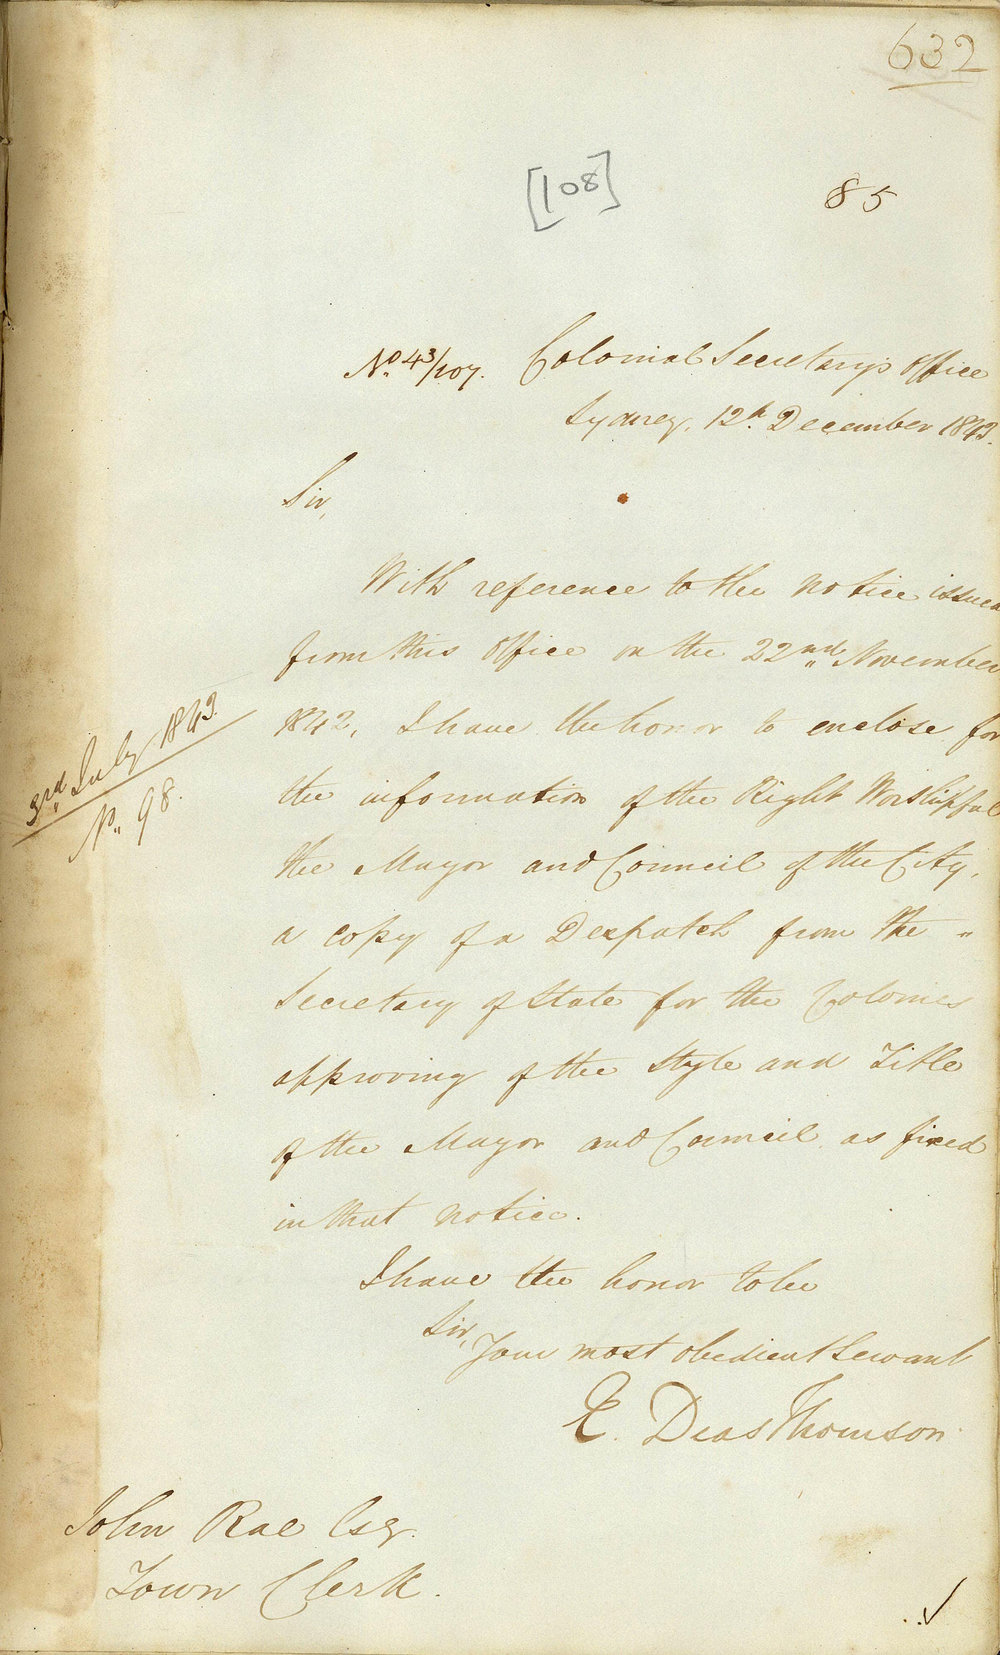 632
[108]
85
No. 43/107. Colonial Secretary's Office
Sydney, 12th December 1843.
Sir,
With reference to the notice issued
from this Office on the 22nd November
1842, I have the honor to enclose for
the information of the Right Worshipful
the Mayor and Council of the City,
3rd July 1843.
No. 98.
a copy of a Despatch from the "
Secretary of State for the Colonies
approving of the Style and Title
of the Mayor and Council as fixed
in that notice.
I have the honor to be
Sir,
Your most obedient Servant
E. Deas Thomson
John Rae Esqr.
Town Clerk.